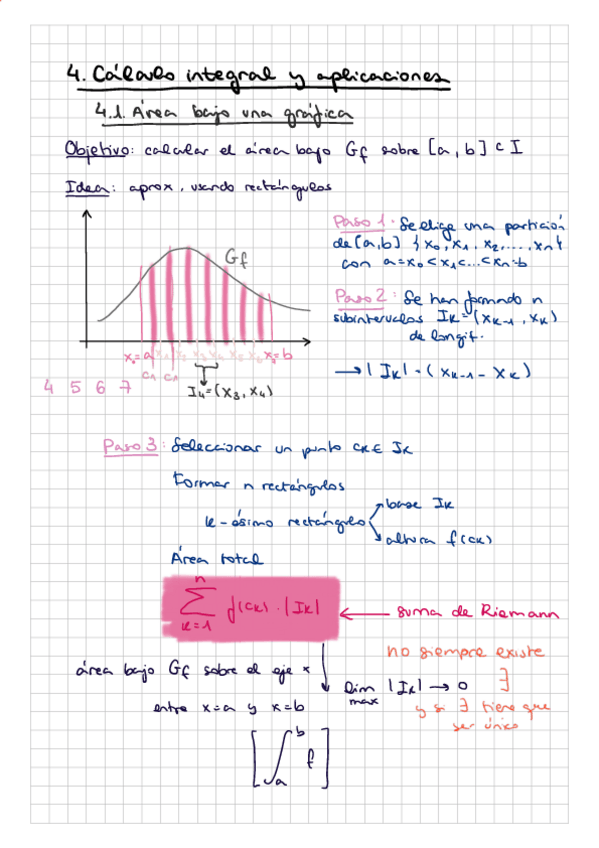 4. Cálculo integral y aplicaciones
4.1. Área bajo una gráfica
Objetivo: calcular el área bajo Gf sobre [a, b] ⊂ I
Idea: aprox, usando rectángulos
Gf
Paso 1: Se elige una partición
de [a,b] {x₀, x₁, x₂, ..., xₙ}
con a=x₀<x₁<...<xₙ=b
Paso 2: Se han formado n
subintervalos Iₖ=(xₖ₋₁, xₖ)
de longit.
→ |Iₖ| = (xₖ₋₁ - xₖ)
x₀=a x₁ x₂ x₃ x₄ x₅ x₆ =b
C₁ C₁
4 5 6 7
I₄=(x₃, x₄)
Paso 3: Seleccionar un punto cₖ ∈ Iₖ
Formar n rectángulos
k-ésimo rectángulo
base Iₖ
altura f(cₖ)
Área total
n
∑ f(cₖ) · |Iₖ|
k=1
← suma de Riemann
no siempre existe
área bajo Gf sobre el eje x
lim |Iₖ| → 0 ∃
max
entre x=a y x=b
y si ∃ tiene que
ser único
[∫ₐᵇ f]